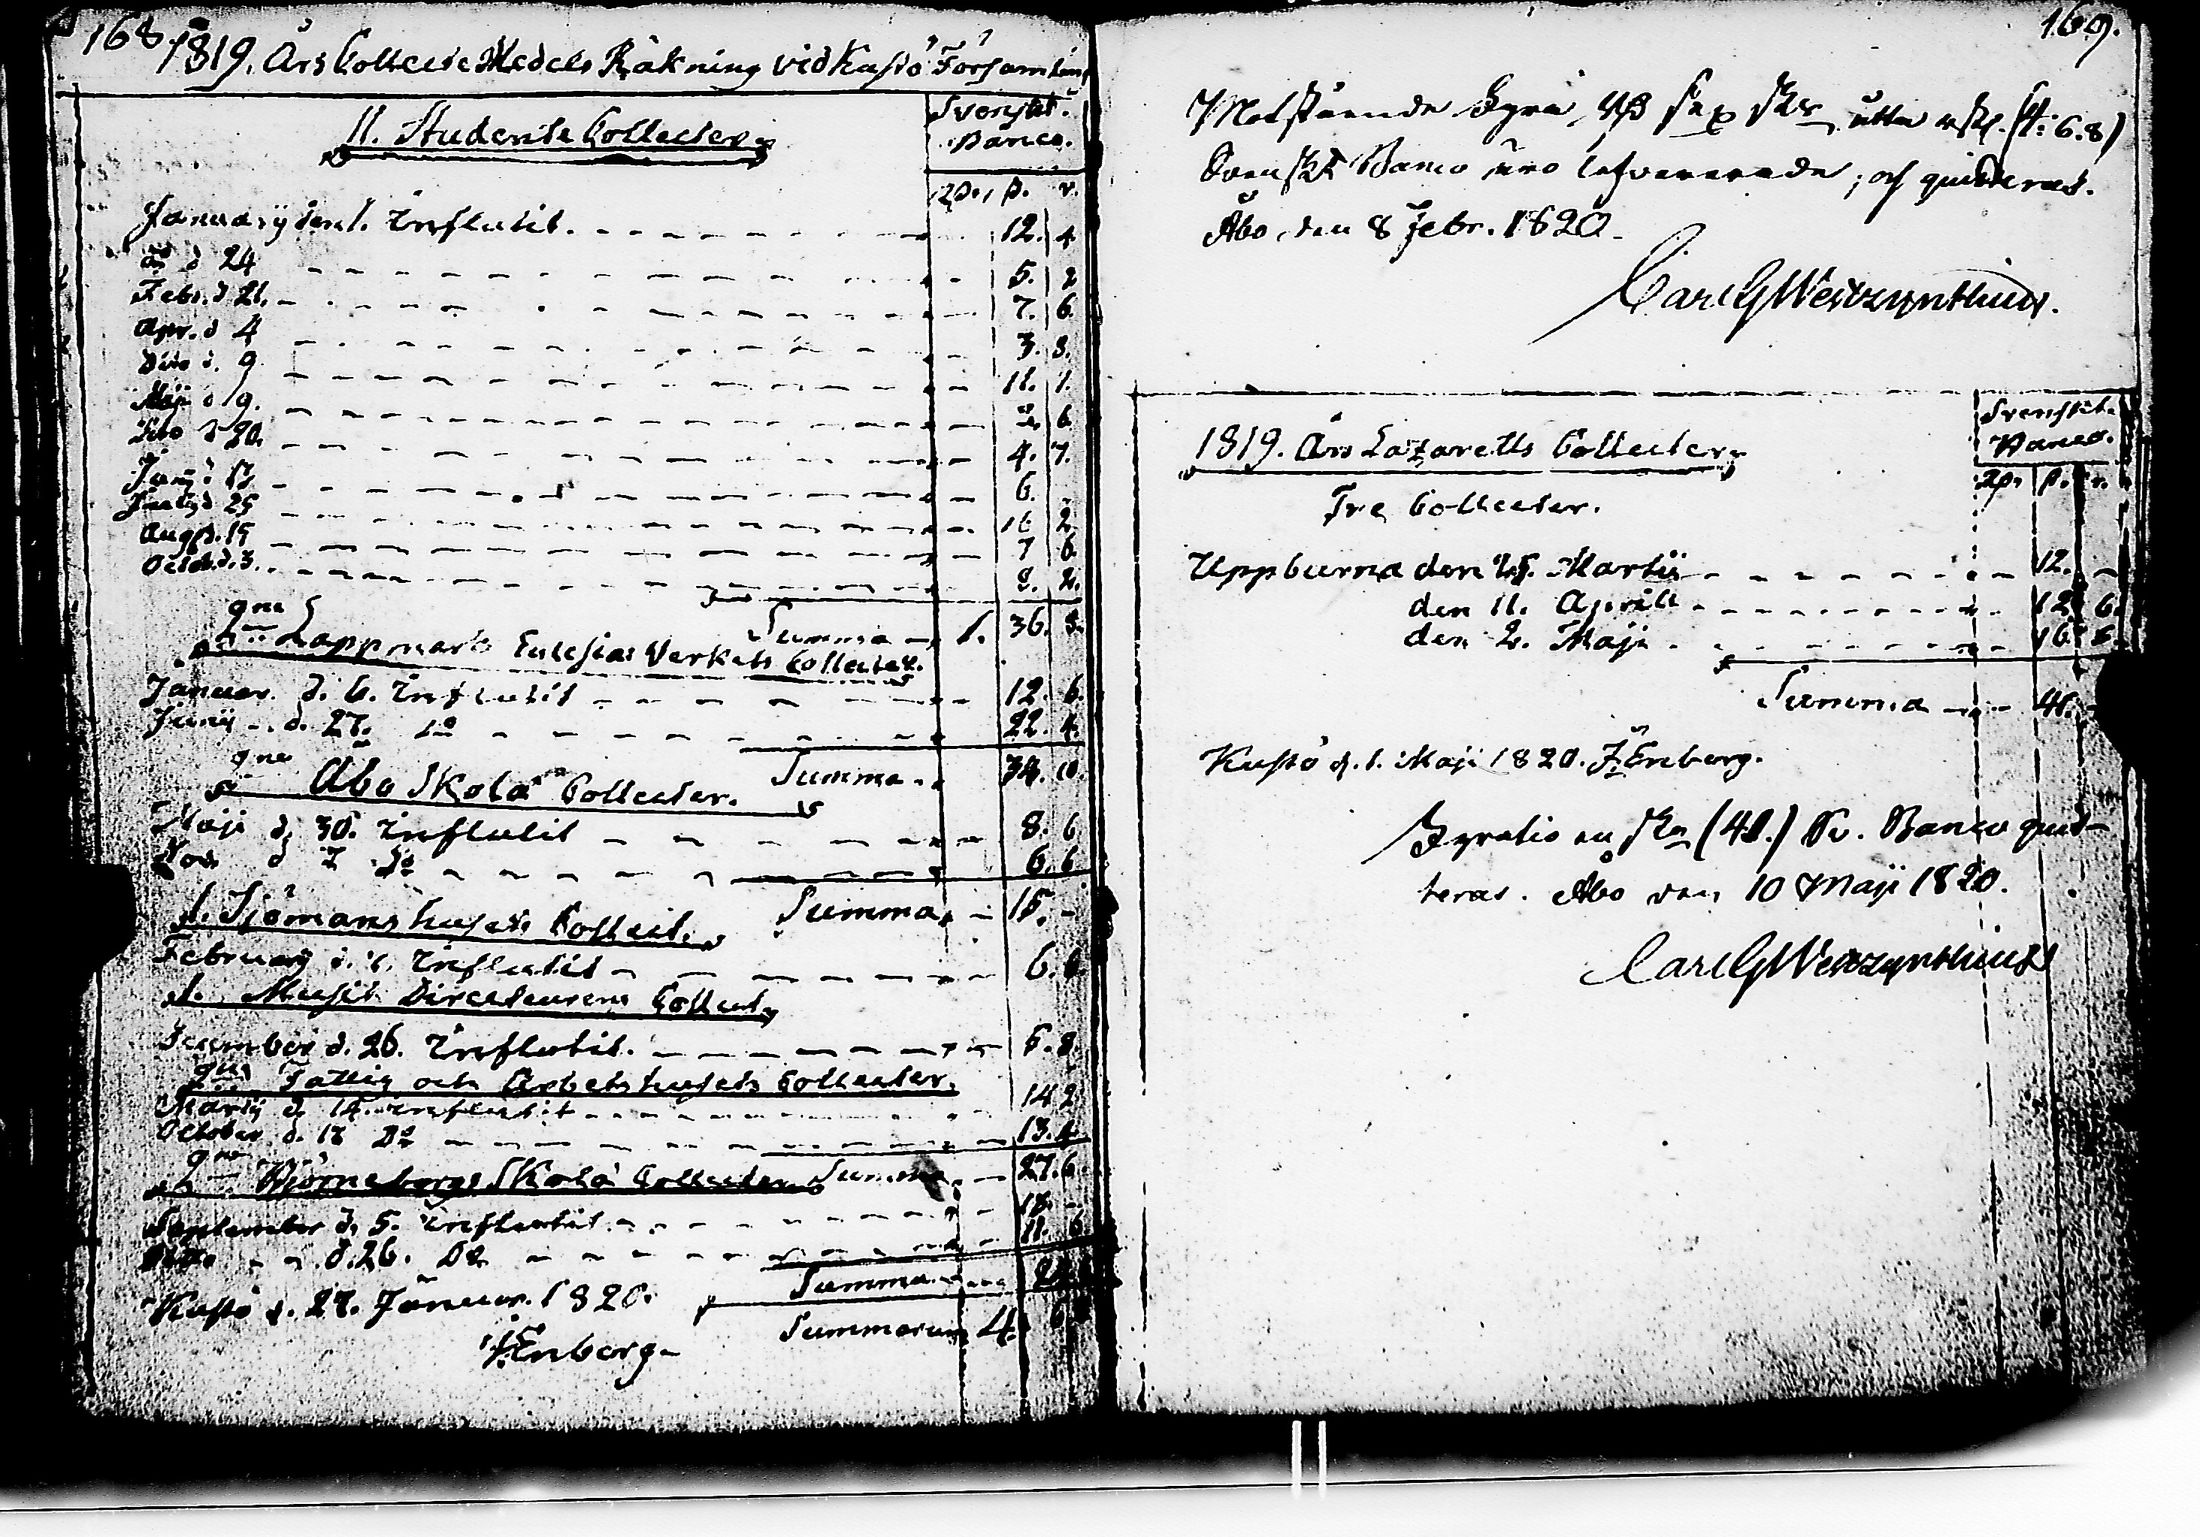 168.
1819. Års Collecte Medels Räkning vid Kustö Församling
11. Studente Collecter.
Svenskt.
Banco.
Rd. ß. r.
January den 1. Influtit. 12. 4
d 24 5. 2
Febr. d 21. 7. 6.
Apr. d 4 3. 8.
Dito d. 9 11. 1.
Maji d 9. 2. 6
Dito d 20. 4. 7.
Junij d 13 6.
July d 25 16 2
Aug. d. 15 7 6.
Octob. d. 3. 2.
Summa 1. 36. 8.
2ne Lappmarks Eclesias Verkets Collecter.
Januar. d. 6. Influtit 12. 6.
Junij d. 27. Do 22. 4.
Summa 34. 10.
2ne Åbo Skola Collecter.
Maji d. 30. Influtit 8. 6
Nov. d 7 Do 6. 6
Summa 15. -
1. Sjömans husets Collect.
February d. Influtit 6. 6
1. Musik Directeurens Collect
December d. 26. Influtit. 5. 8.
2ne Fattig och Arbets husets Collecter.
Martij d. 14. Influtit 14 2
October d. 18 Do 13. 4.
Summa 27. 6
2ne Björneborgs Skola Collecter
September d. 5. Influtit. 18. -
Dito d. 26. Do 11. 6
Summa
Kustö d. 27. Januar. 1820.
Summarum 4. 6
J. Enberg
169.
Motstående Fyra, Rd sex sk. åtta rst. (4: 6. 8)
Svenskt Banco äro lefvererade, och quitteras.
Åbo, den 8 Febr. 1820.
Carl G Westzynthius.
1819. Års Lazaretts Collecter
Svenskt.
Banco.
Rd. ß. r.
Tre Collecter.
Uppburna den 25. Martii 12. -
den 11. Aprill 12 6.
den 2. Maji 16. 6.
Summa 41. -
Kustö d. 1. Maji 1820. J. Enberg.
Fyratio en sk. (41.) Sv. Banco quit-
teras. Åbo den 10 Maji 1820.
Carl G Westzynthius